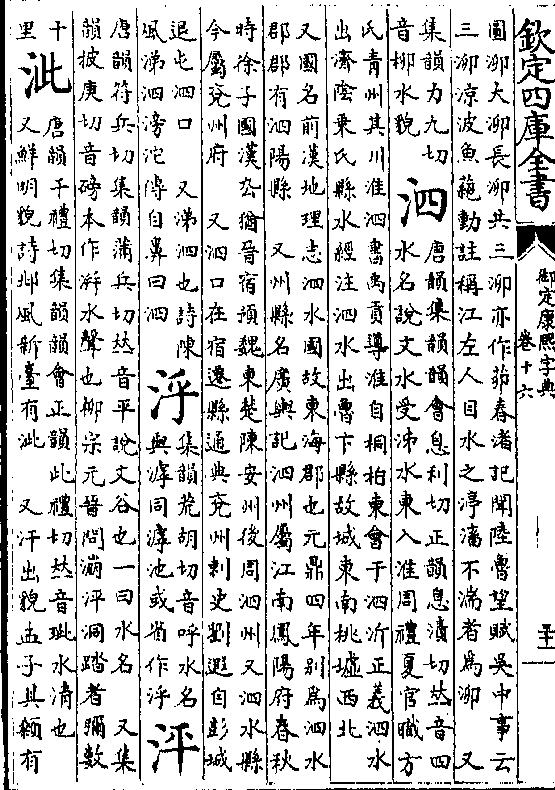 欽定四庫全書
御定康熙字典
卷十六
圖泖大泖長泖共三泖亦作茆春渚記聞陸魯望賦吳中事云
三泖涼波魚蕝動註稱江左人目水之渟滀不湍者為泖 又
集韻力九切音柳水貌 泗 唐韻集韻韻會息利切正韻息漬切𠀤音四水名說文水受泲水東入淮周禮夏官職方
氏青州其川淮泗書禹貢導淮自桐柏東會于泗沂正義泗水
出濟陰乘氏縣水經注泗水出魯卞縣故城東南桃墟西北
又國名前漢地理志泗水國故東海郡也元鼎四年別為泗水
郡郡有泗陽縣 又州縣名廣輿記泗州屬江南鳳陽府春秋
時徐子國漢厹猶晉宿預魏東楚陳安州後周泗州又泗水縣
今屬兗州府 又泗口在宿遷縣通典兗州刺史劉遐自彭城
退屯泗口 又涕泗也詩陳風涕泗滂沱傳自鼻曰泗 泘 集韻荒胡切音呼水名與滹同滹池或省作泘 泙
唐韻符兵切集韻蒲兵切𠀤音平說文谷也一曰水名 又集
韻披庚切音磅本作漰水聲也柳宗元晉問漰泙洞踏者彌數
十里 泚 唐韻千禮切集韻韻會正韻此禮切𠀤音玼水清也又鮮明貌詩邶風新臺有泚 又汗出貌孟子其顙有